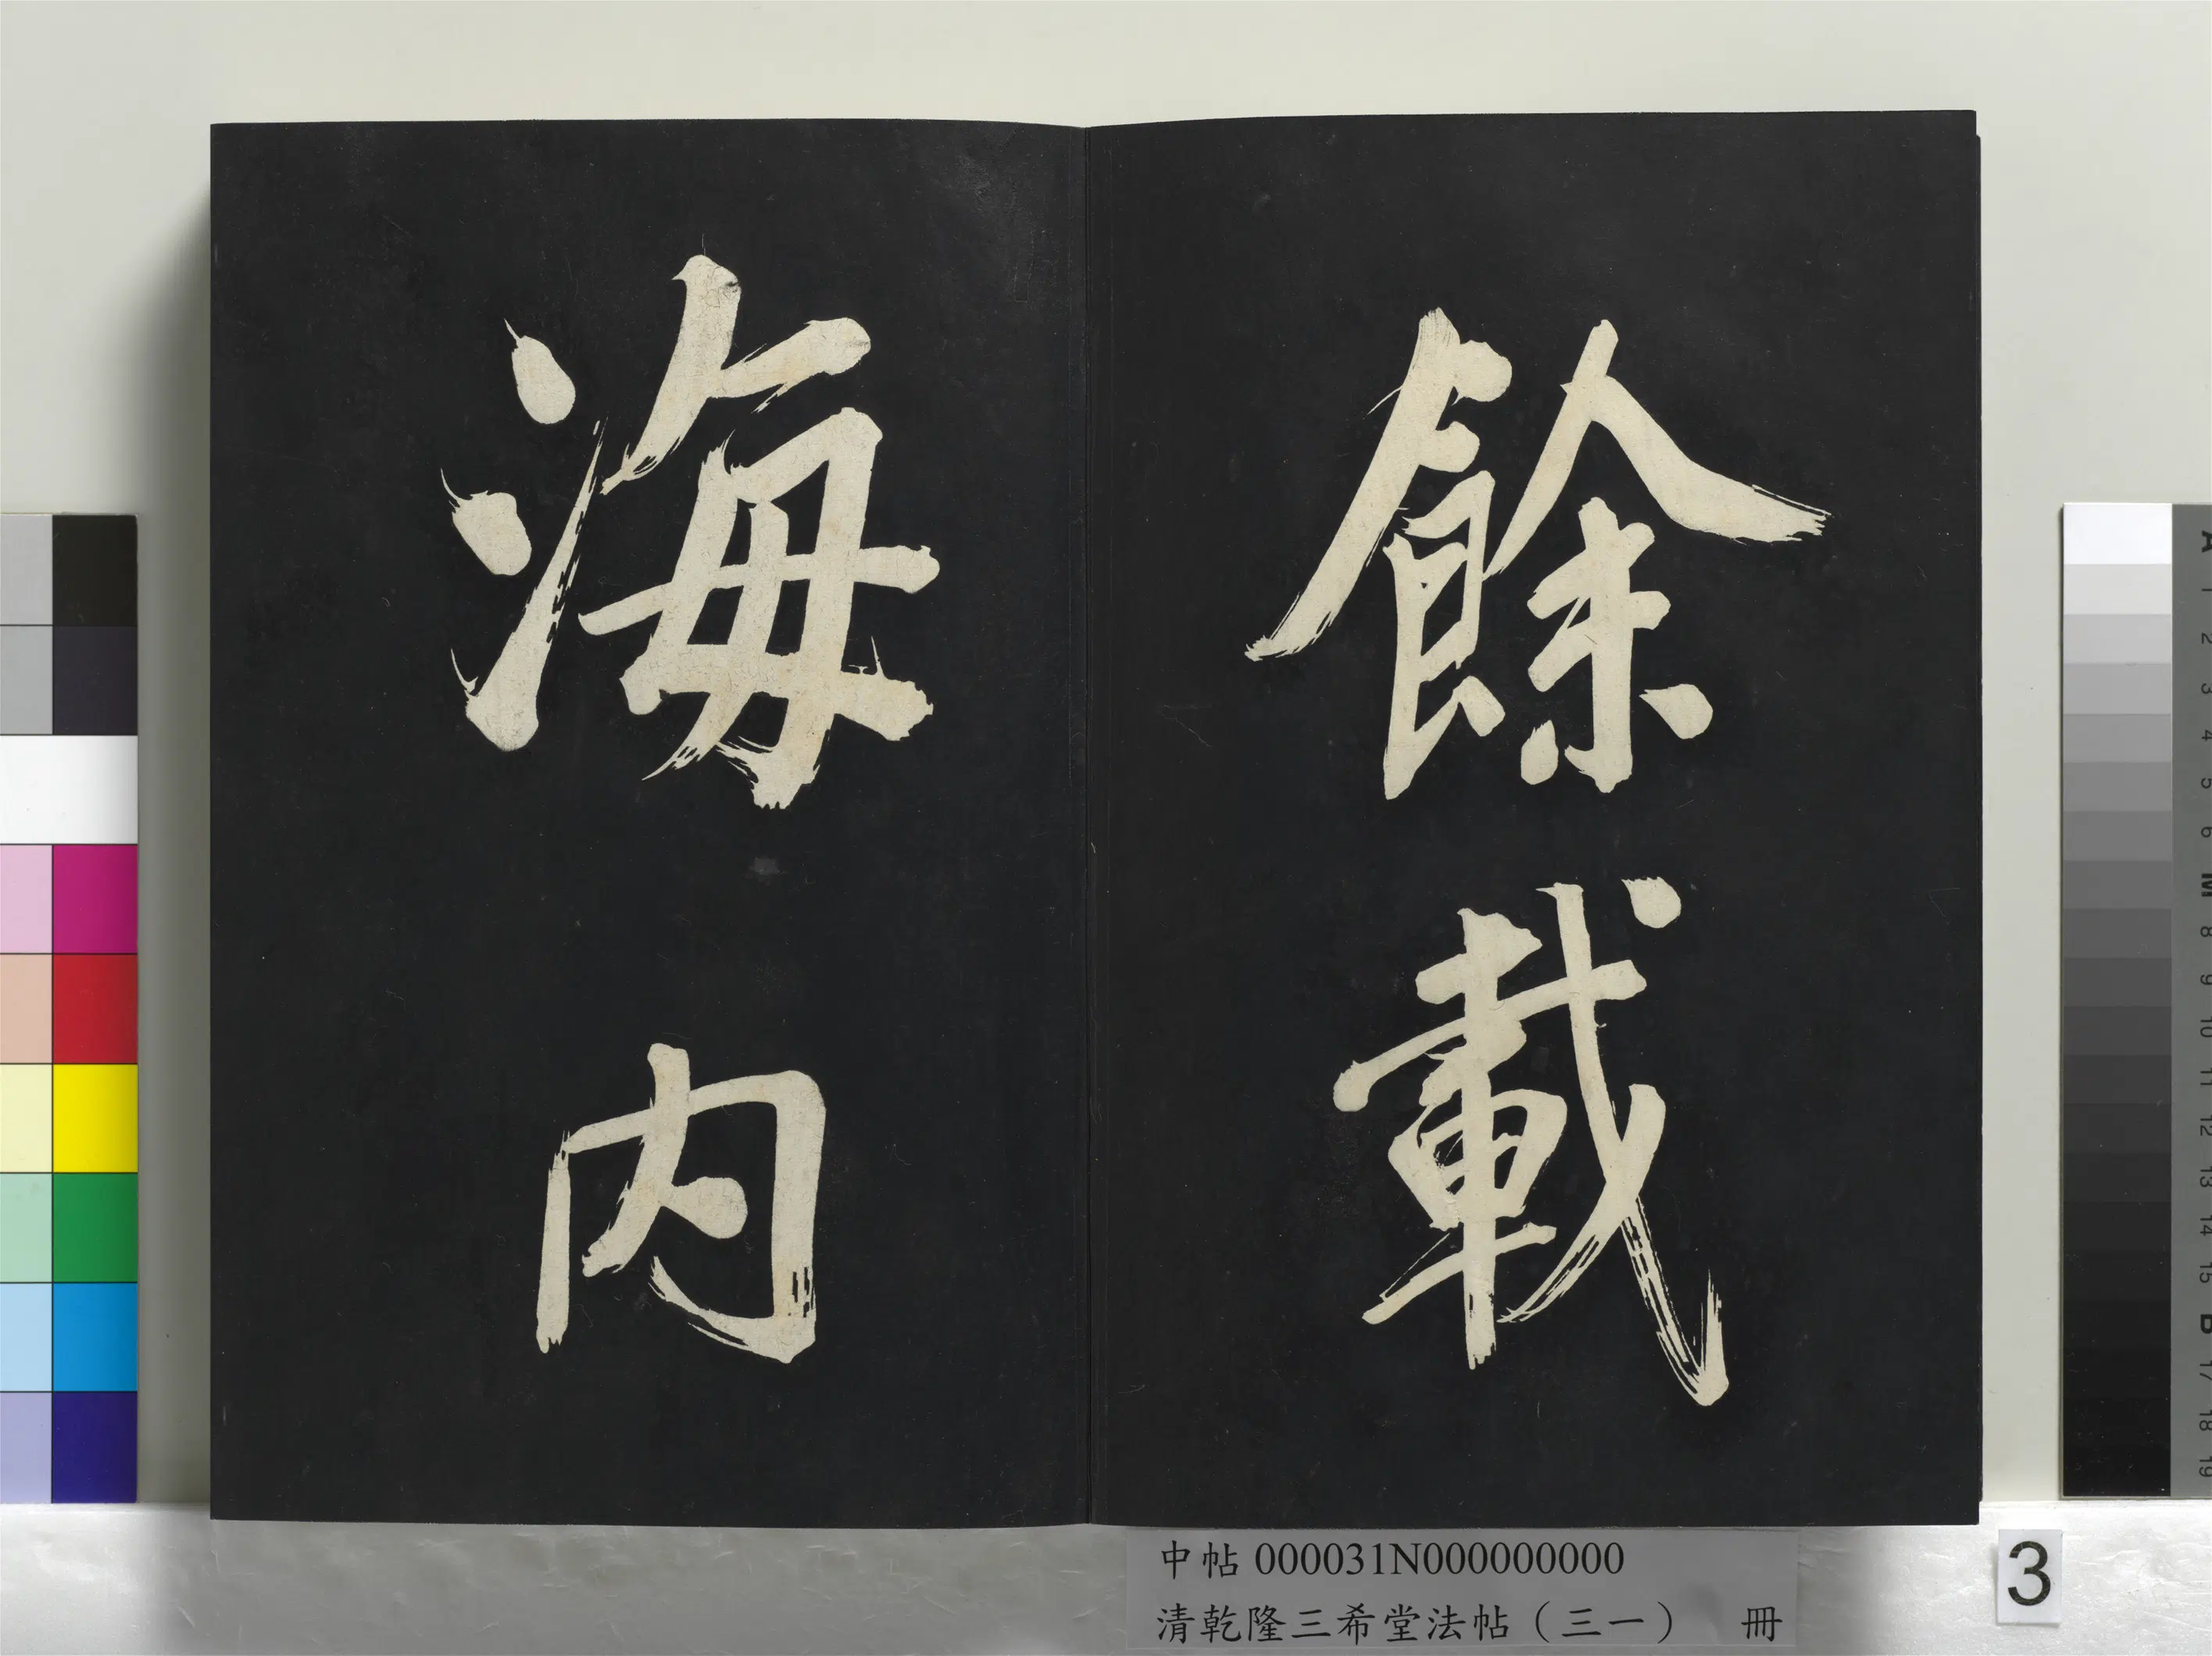 餘載
海內
中帖 000031N000000000
清乾隆三希堂法帖（三一） 冊
3
A 1 2 3 4 5 6 M 8 9 10 11 12 13 14 15 B 17 18 19